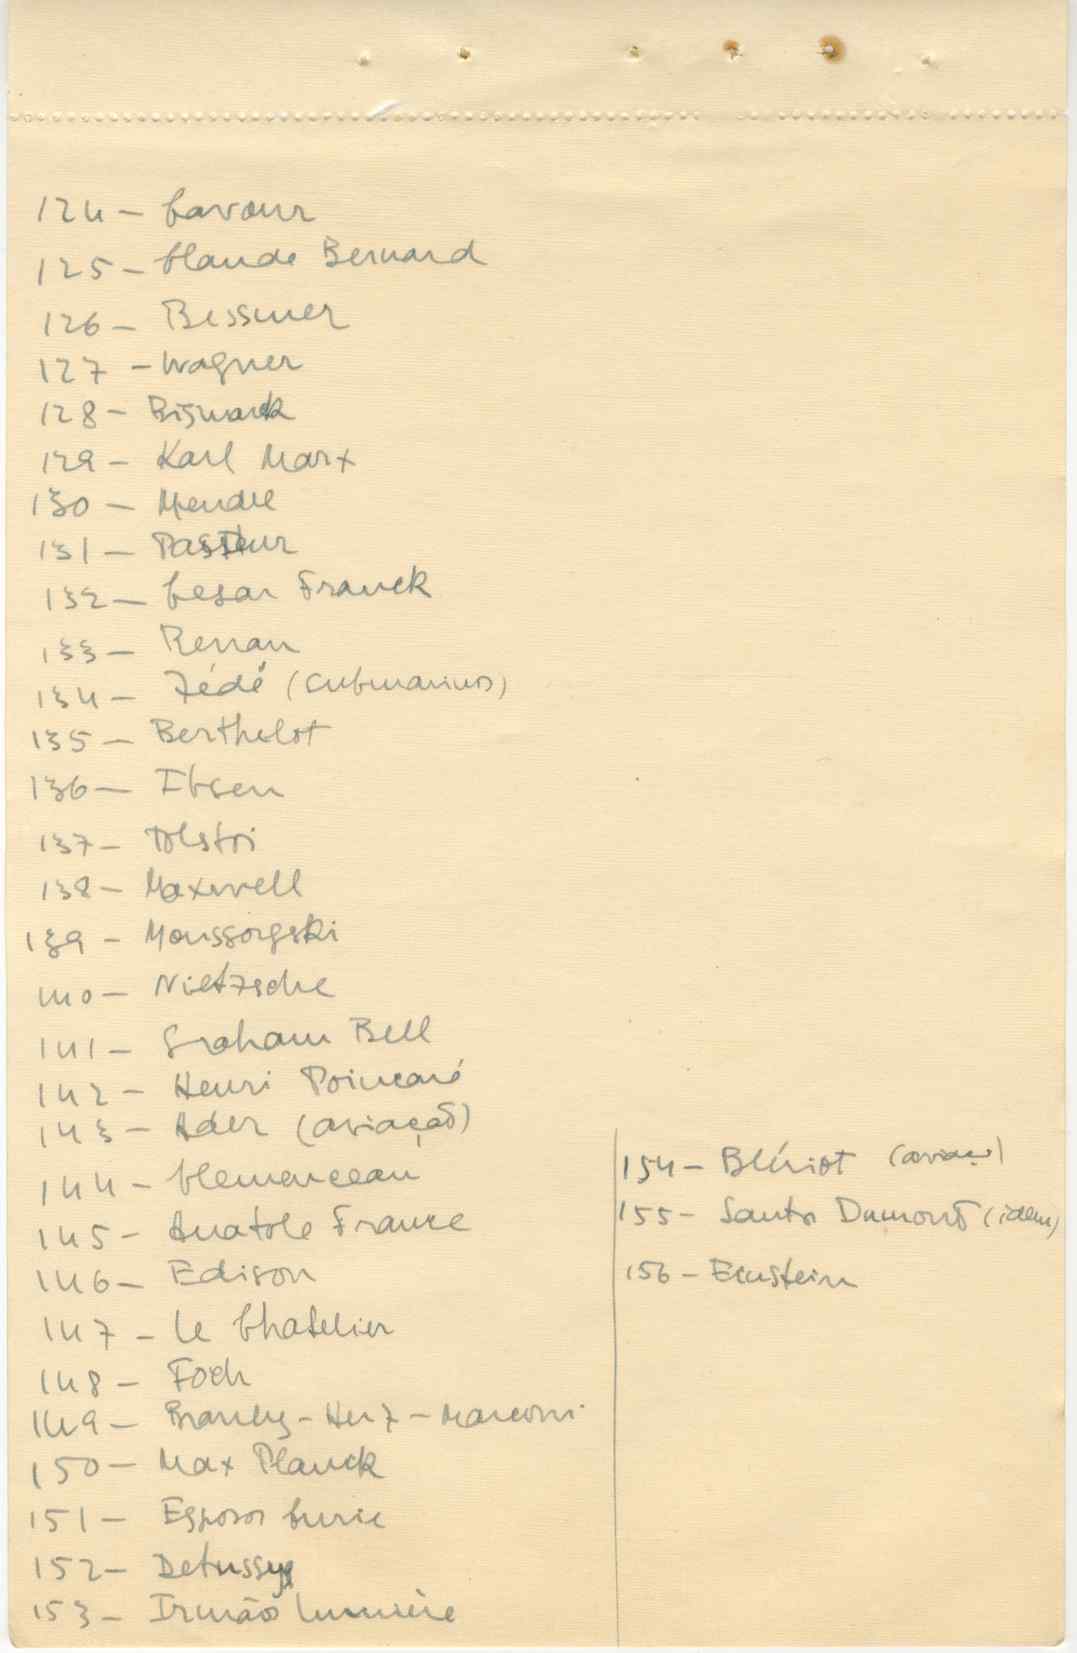 124 - Cavour
125 - Claude Bernard
126 - Bessmer
127 - Wagner
128 - Bismarck
129 - Karl Marx
130 - Mendel
131 - Pasteur
132 - Cesar Franck
133 - Renan
134 - Zédé (submarinos)
135 - Berthelot
136 - Ibsen
137 - Tolstoi
138 - Maxwell
139 - Moussorgski
140 - Nietzsche
141 - Graham Bell
142 - Henri Poincaré
143 - Ader (aviação)
144 - Clemenceau
145 - Anatole France
146 - Edison
147 - Le Chatelier
148 - Foch
149 - Branly - Herz - Marconi
150 - Max Planck
151 - Esposos Curie
152 - Debussy
153 - Irmãos Lumière
154 - Blériot (aviaç)
155 - Santos Dumont (idem)
156 - Einstein